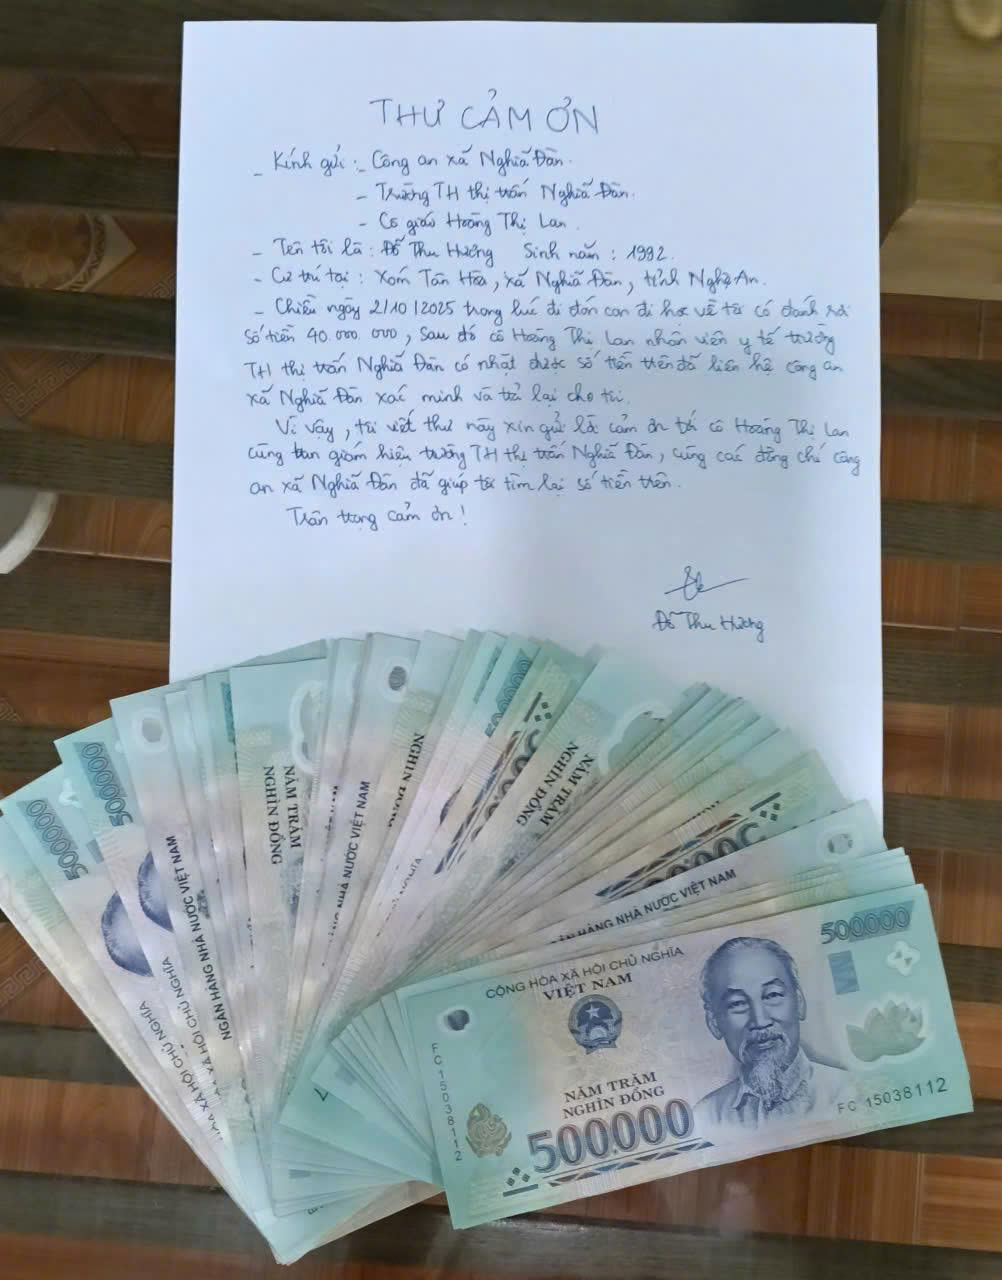 THƯ CẢM ƠN
- Kính gửi : - Công an xã Nghĩa Đàn.
- Trường TH thị trấn Nghĩa Đàn.
- Cô giáo Hoàng Thị Lan.
- Tên tôi là : Đỗ Thu Hương Sinh năm : 1992.
- Cư trú tại : Xóm Tân Hòa, xã Nghĩa Đàn, tỉnh Nghệ An.
- Chiều ngày 2/10/2025 trong lúc đi đón con đi học về tôi có đánh rơi
số tiền 40.000.000, sau đó cô Hoàng Thị Lan nhân viên y tế trường
TH thị trấn Nghĩa Đàn có nhặt được số tiền trên đã liên hệ công an
xã Nghĩa Đàn xác minh và trả lại cho tôi.
Vì vậy, tôi viết thư này xin gửi lời cảm ơn tới cô Hoàng Thị Lan
cùng ban giám hiệu trường TH thị trấn Nghĩa Đàn, cùng các đồng chí công
an xã Nghĩa Đàn đã giúp tôi tìm lại số tiền trên.
Trân trọng cảm ơn!
Đỗ Thu Hương
500000
500000
NGÂN HÀNG NHÀ NƯỚC VIỆT NAM
XÃ HỘI CHỦ NGHĨA
XÃ HỘI CHỦ NGHĨA
NĂM TRĂM
NGHÌN ĐỒNG
HÀNG NHÀ NƯỚC VIỆT NAM
NGHÌN ĐỒNG
500000
NĂM TRĂM
NGHÌN ĐỒNG
HÀNG NHÀ NƯỚC VIỆT NAM
CỘNG HÒA XÃ HỘI CHỦ NGHĨA
VIỆT NAM
500000
FC 15038112
NĂM TRĂM
NGHÌN ĐỒNG
500000
FC 15038112